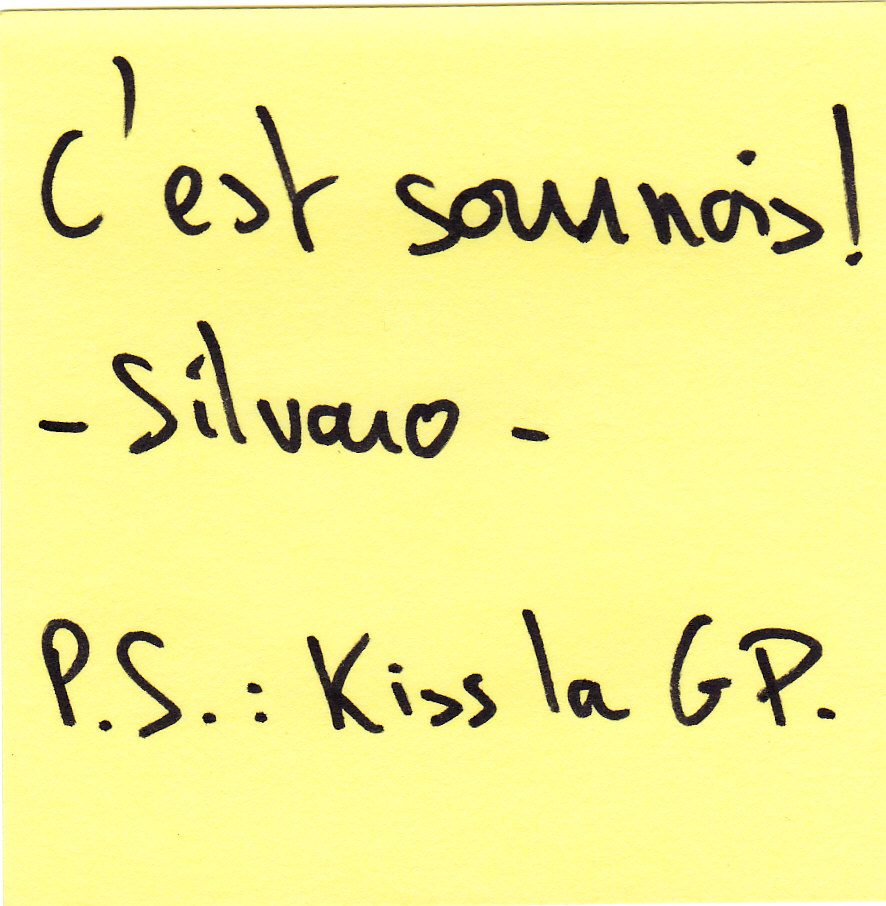 C'est sournois!
- Silvaro -
P.S.: Kiss la GP.